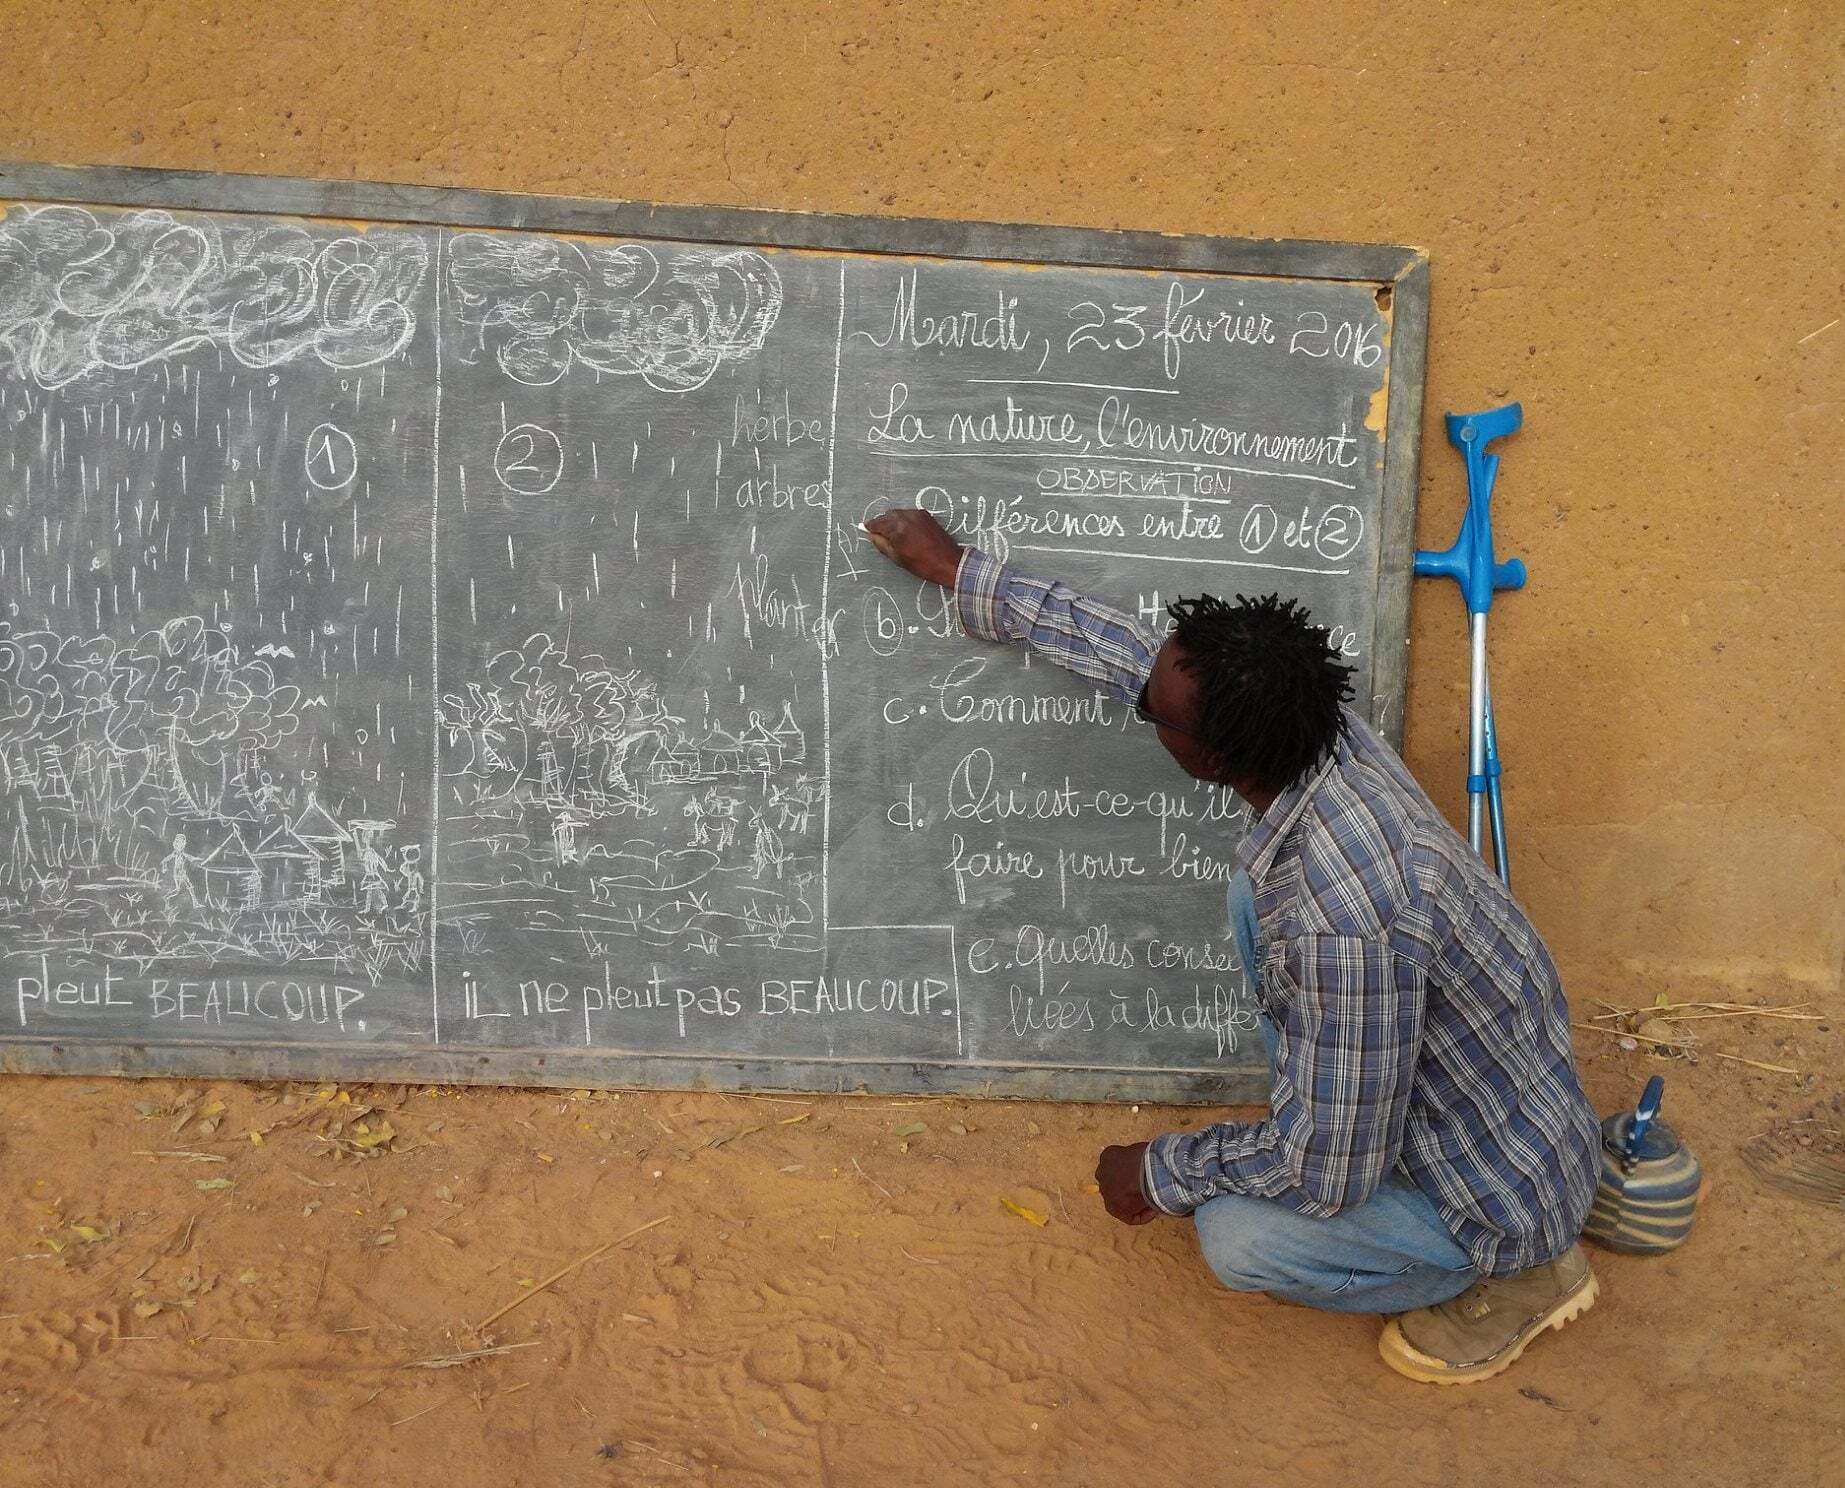 1
pleut BEAUCOUP.
2
herbe
arbres
planter
il ne pleut pas BEAUCOUP.
Mardi, 23 février 2016
La nature, l'environnement
OBSERVATION
Différences entre 1 et 2
b.
c. Comment
d. Qu'est-ce-qu'il
faire pour bien
e. Quelles
liées à la